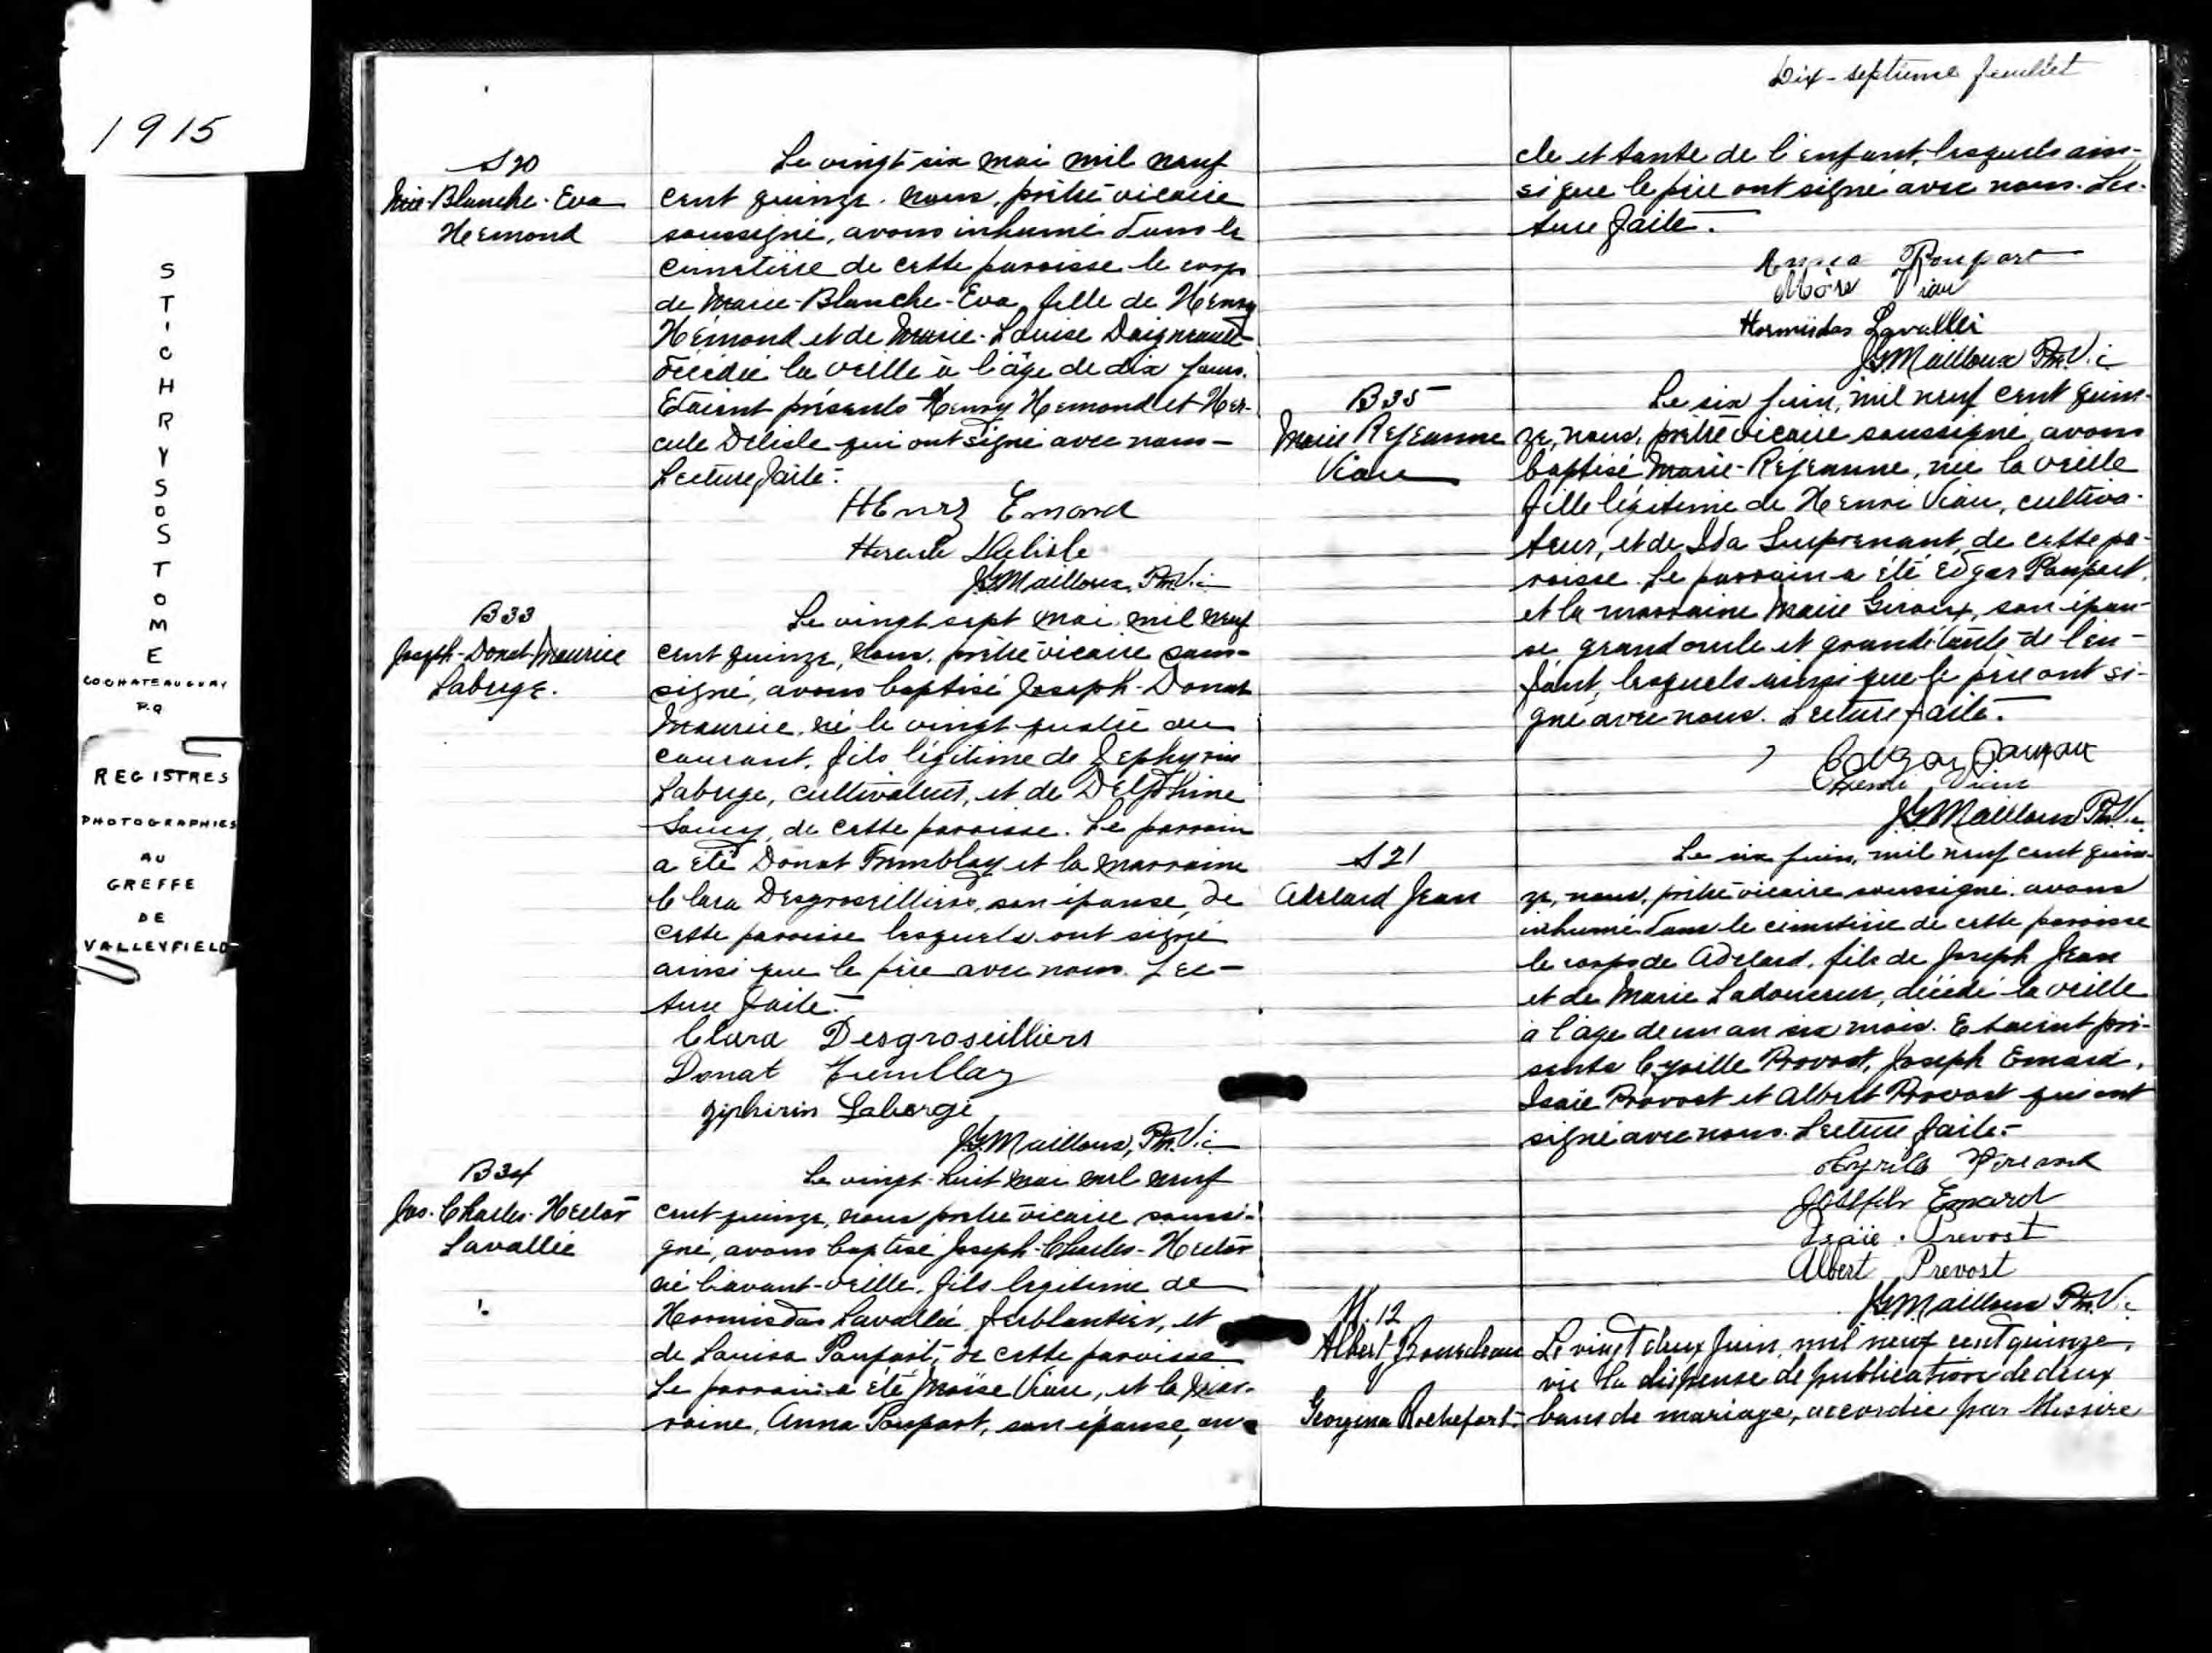 1915
ST. CHRYSOSTOME
CO CHATEAUGUAY
P.Q
REGISTRES
PHOTOGRAPHIES
AU
GREFFE
DE
VALLEYFIELD
S 20
Mie-Blanche-Eva
Hemond
Le vingt-six mai mil neuf
cent quinze, nous, prêtre vicaire
soussigné, avons inhumé dans le
cimetière de cette paroisse le corps
de Marie-Blanche-Eva, fille de Henry
Hémond et de Marie-Louise Daigneault
décédée la veille à l'âge de dix jours.
Etaient présents Henry Hemond et Her-
cule Delisle qui ont signé avec nous-
Lecture faite.
Henry Emond
Hercule Delisle
J.G. Mailloux, Ptre. Vic.
B 33
Joseph-Donat-Maurice
Laberge.
Le vingt sept mai, mil neuf
cent quinze, nous, prêtre vicaire sous-
signé, avons baptisé Joseph-Donat
Maurice, né le vingt-quatre du
courant, fils légitime de Zephyrin
Laberge, cultivateur, et de Delphine
Soucy, de cette paroisse. Le parrain
a été Donat Tremblay et la marraine
Clara Desgroseilliers, son épouse, de
cette paroisse lesquels ont signé
ainsi que le père avec nous. Lec-
ture faite.
Clara Desgroseilliers
Donat Tremblay
Ziphirin Laberge
J.G. Mailloux, Ptre. Vic.
B 34
Jos. Charles-Hector
Lavallée
Le vingt-huit mai mil neuf
cent quinze, nous prêtre vicaire soussi-
gné, avons baptisé Joseph-Charles-Hector
né l'avant-veille, fils legitime de
Hormisdas Lavallée, ferblantier, et
de Louisa Poupart, de cette paroisse
Le parrain a été Moïse Viau, et la mar-
raine, Anna Poupart, son épouse, on-
Dix-septième feuillet
cle et tante de l'enfant, lesquels ain-
si que le père ont signé avec nous. Lec-
ture faite.
Anna Poupart
Moïse Viau
Hormisdas Lavallée
J.G. Mailloux Ptre. Vic.
B 35
Marie Rejeanne
Viau
Le six juin, mil neuf cent quin-
ze, nous, prêtre vicaire soussigné, avons
baptisé Marie-Réjeanne, née la veille
fille légitime de Henri Viau, cultiva-
teur, et de Ida Surprenant, de cette pa-
roisse. Le parrain a été Edgar Poupart,
et la marraine Marie Giroux, son épou-
se grand oncle et grande tante de l'en-
fant, lesquels ainsi que le père ont si-
gné avec nous. Lecture faite.
Edgar Poupart
Henri Viau
J.G. Mailloux Ptre. Vic.
S 21
Adelard Jean
Le six juin, mil neuf cent quin-
ze, nous, prêtre vicaire soussigné, avons
inhumé dans le cimetière de cette paroisse
le corps de Adelard, fils de Joseph Jean
et de Marie Ladouceur, décédé la veille
à l'âge de un an six mois. Etaient pré-
sents Cyrille Provost, Joseph Emard,
Isaïe Provost et Albert Provost qui ont
signé avec nous. Lecture faite.
Cyrille
Emard
Isaïe Prevost
Albert Prevost
J.G. Mailloux Ptre. Vic.
M. 12
Albert
Georgena Rochefort.
Le vingt deux Juin, mil neuf cent quinze,
vu la dispense de publication de deux
bans de mariage, accordée par Messire